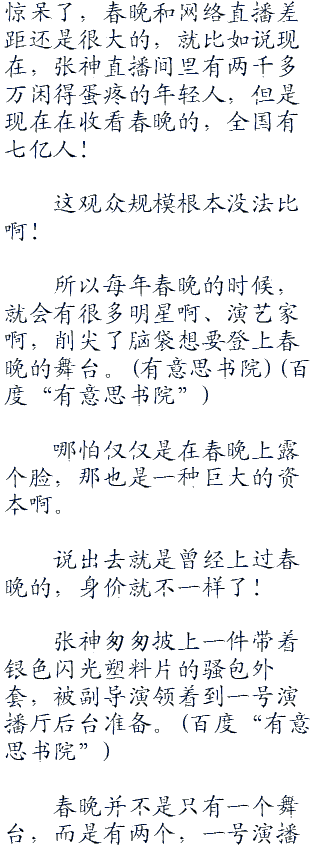 惊呆了，春晚和网络直播差
距还是很大的，就比如说现
在，张神直播间里有两千多
万闲得蛋疼的年轻人，但是
现在在收看春晚的，全国有
七亿人！
这观众规模根本没法比
啊！
所以每年春晚的时候，
就会有很多明星啊、演艺家
啊，削尖了脑袋想要登上春
晚的舞台。(有意思书院)(百
度“有意思书院”)
哪怕仅仅是在春晚上露
个脸，那也是一种巨大的资
本啊。
说出去就是曾经上过春
晚的，身价就不一样了！
张神匆匆披上一件带着
银色闪光塑料片的骚包外
套，被副导演领着到一号演
播厅后台准备。(百度“有意
思书院”)
春晚并不是只有一个舞
台，而是有两个，一号演播